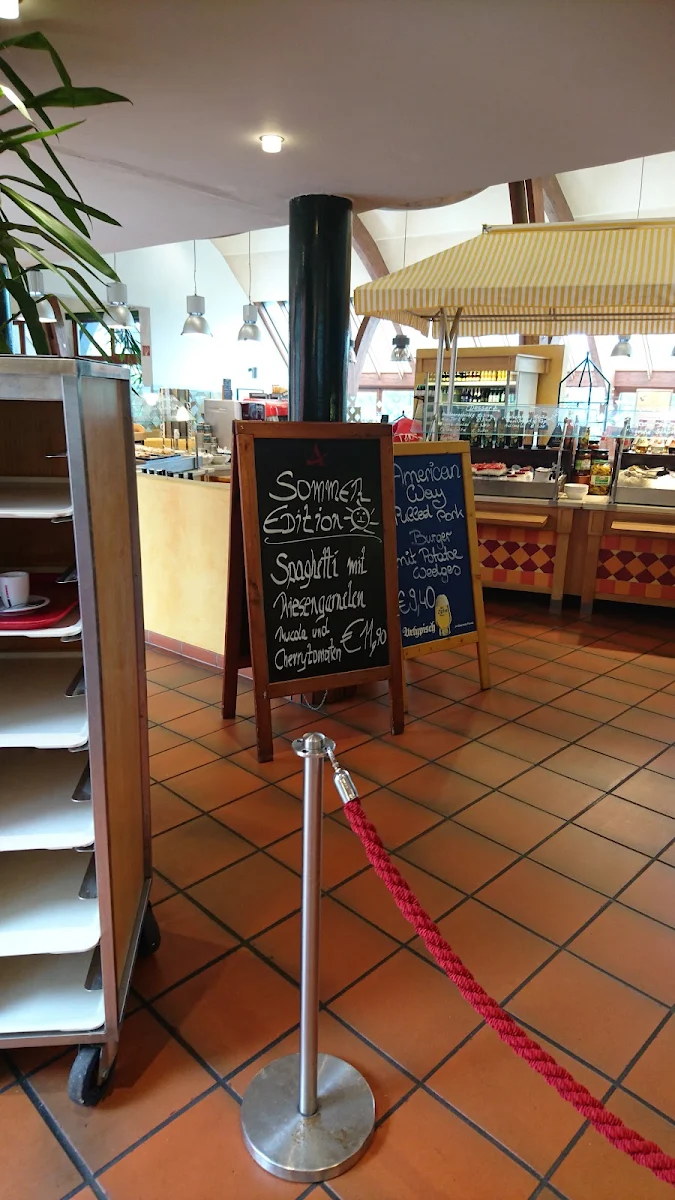 Sommer
Edition
Spaghetti mit
Riesengarnelen
Rucola und
Cherrytomaten €11,90
American
Way
Pulled Pork
Burger
mit Potatoe
Wedges
€9,40
Urtypisch
Dessert